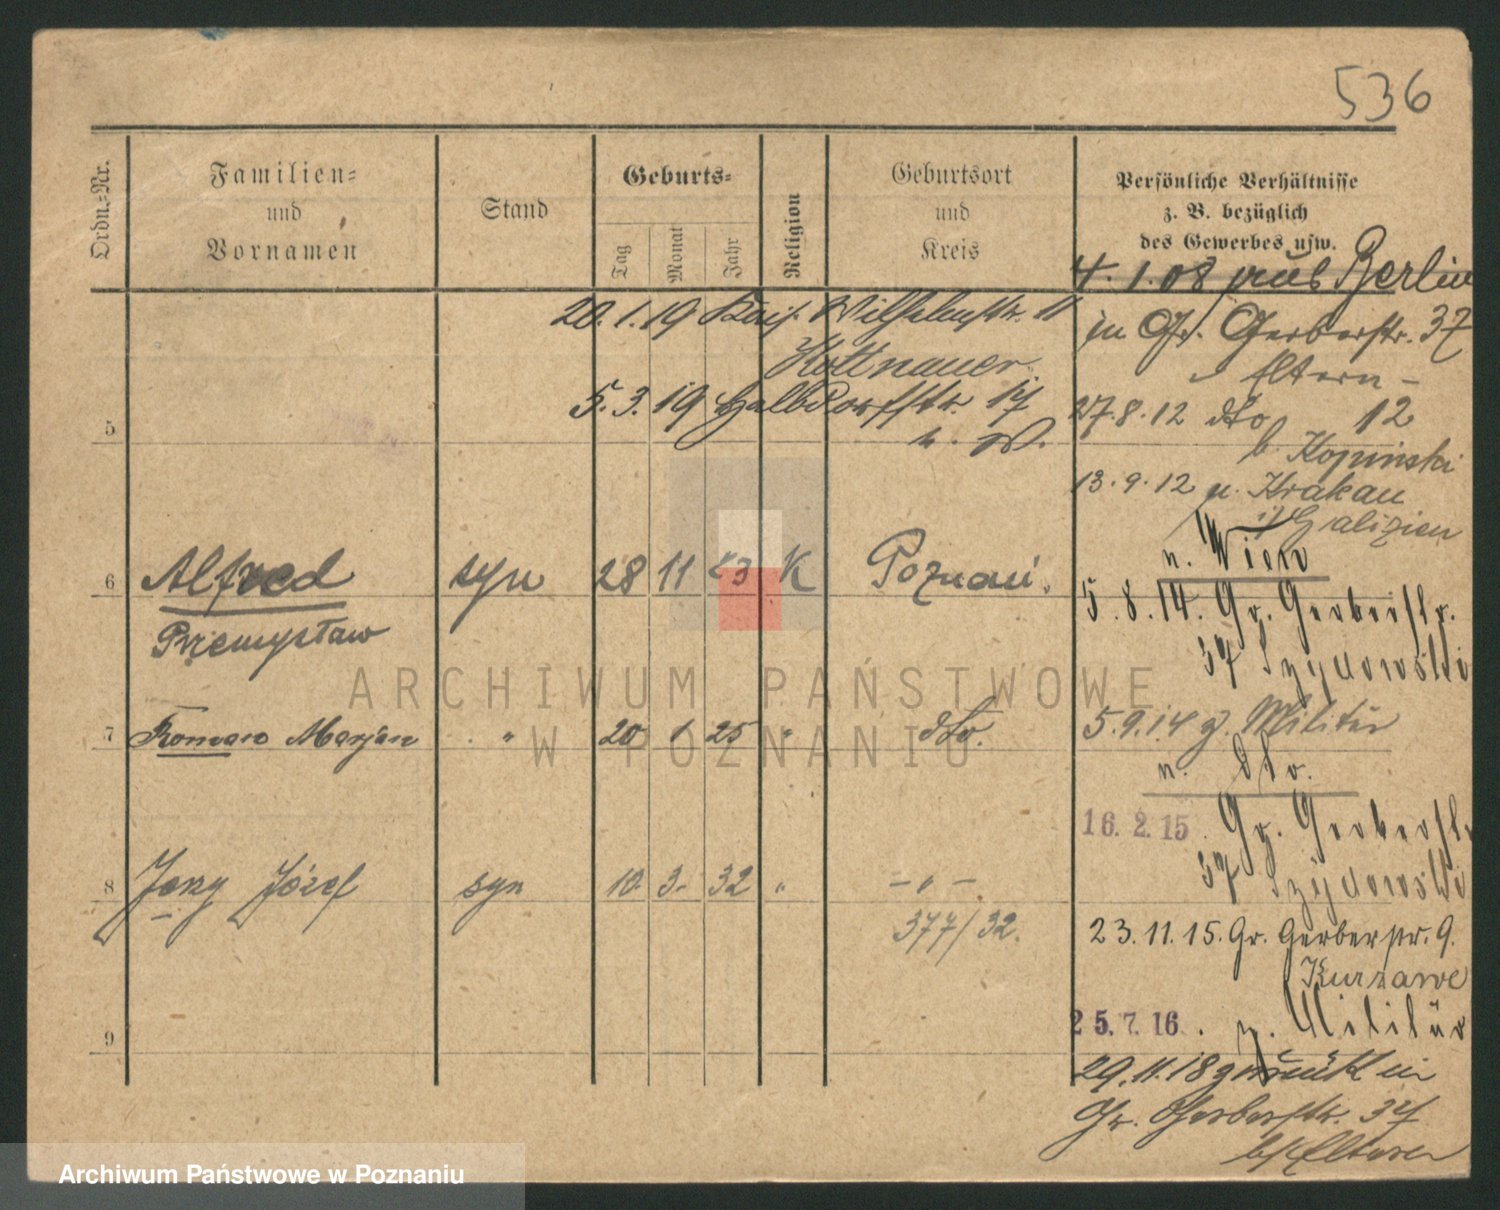 536
Ordn.-Nr.
Familien-
und
Vornamen
Stand
Geburts-
Tag
Monat
Jahr
Religion
Geburtsort
und
Kreis
Persönliche Verhältnisse
z. B. bezüglich
des Gewerbes usw.
20.1.19 Kais. Wilhelmstr. 11
5.3.19 Halbdorfstr. 17
b. W.
5
6 Alfred syn 28 11 23 K Poznań.
Przemysław
7 Roman Marjan " 20 1 25 " dto.
8 Jerzy Józef syn 10. 3. 32 " – " –
377/32.
9
4.1.08 aus Berlin
in Gr. Gerberstr. 37
Eltern –
27.8.12 dto 12
b. Kopinski
13.9.12 n. Krakau
i/Galizien
n. Wien
5.8.14. Gr. Gerberstr.
37 Szydowski
5.9.14 z. Militär
n. dto.
16.2.15. Gr. Gerberstr.
37 Szydowski
23.11.15. Gr. Gerberstr. 9.
Kurzawe
25.7.16. z. Militär
29.11.18 zurück in
Gr. Gerberstr. 37
b/Eltern
ARCHIWUM PAŃSTWOWE
W POZNANIU
Archiwum Państwowe w Poznaniu